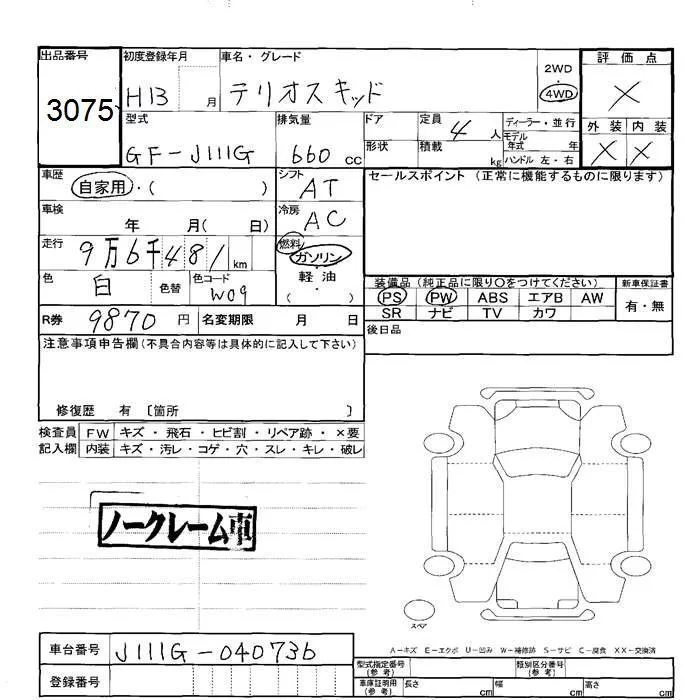 出品番号 初度登録年月 車名・グレード 2WD 評価点
3075 H13 月 テリオスキッド 4WD ×
型式 排気量 ドア 定員 4 人 ディーラー・並行 外装 内装
GF-J111G 660 cc 形状 積載 kg モデル年式 年 × ×
ハンドル 左・右
車歴 自家用・( ) シフト AT セールスポイント (正常に機能するものに限ります)
車検 年 月( 日) 冷房 AC
走行 9万6千481 km 燃料 ガソリン・
色 白 色替 色コード W09 軽油・( )
装備品 (純正品に限り○をつけてください) 新車保証書
PS PW ABS エアB AW 有・無
SR ナビ TV カワ
R券 9870 円 名変期限 月 日 後日品
注意事項申告欄(不具合内容等は具体的に記入して下さい)
修復歴 有 〔箇所 〕
検査員 FW キズ・飛石・ヒビ割・リペア跡・×要
記入欄 内装 キズ・汚レ・コゲ・穴・スレ・キレ・破レ
ノークレーム車
スペア
A-キズ E-エクボ U-凹み W-補修跡 S-サビ C-腐食 XX-交換済
車台番号 J111G-040736 型式指定番号(参考) 類別区分番号(参考)
登録番号 車庫証明用(参考) 長さ cm 幅 cm 高さ cm